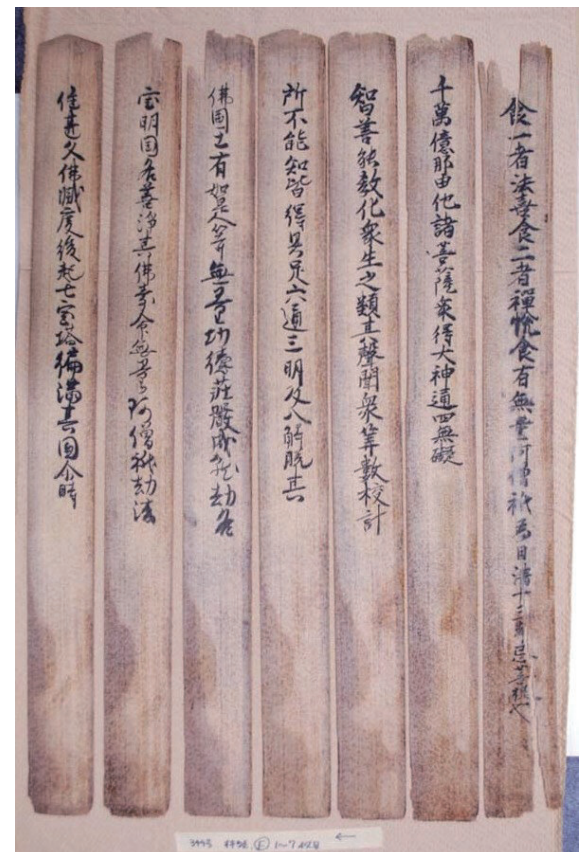 食一者法喜食二者禪悅食有無量阿僧祇為日濟十三年忌菩提也
千萬億那由他諸菩薩衆得大神通四無礙
智善能教化衆生之類其聲聞衆筭數校計
所不能知皆得具足六通三明及八解脱其
佛国土有如是等無量功德莊嚴成就劫名
宝明国名善浄其佛寿命無量阿僧祇劫法
住甚久佛滅度後起七宝塔徧満其国尒時
1〜7枚目 ←